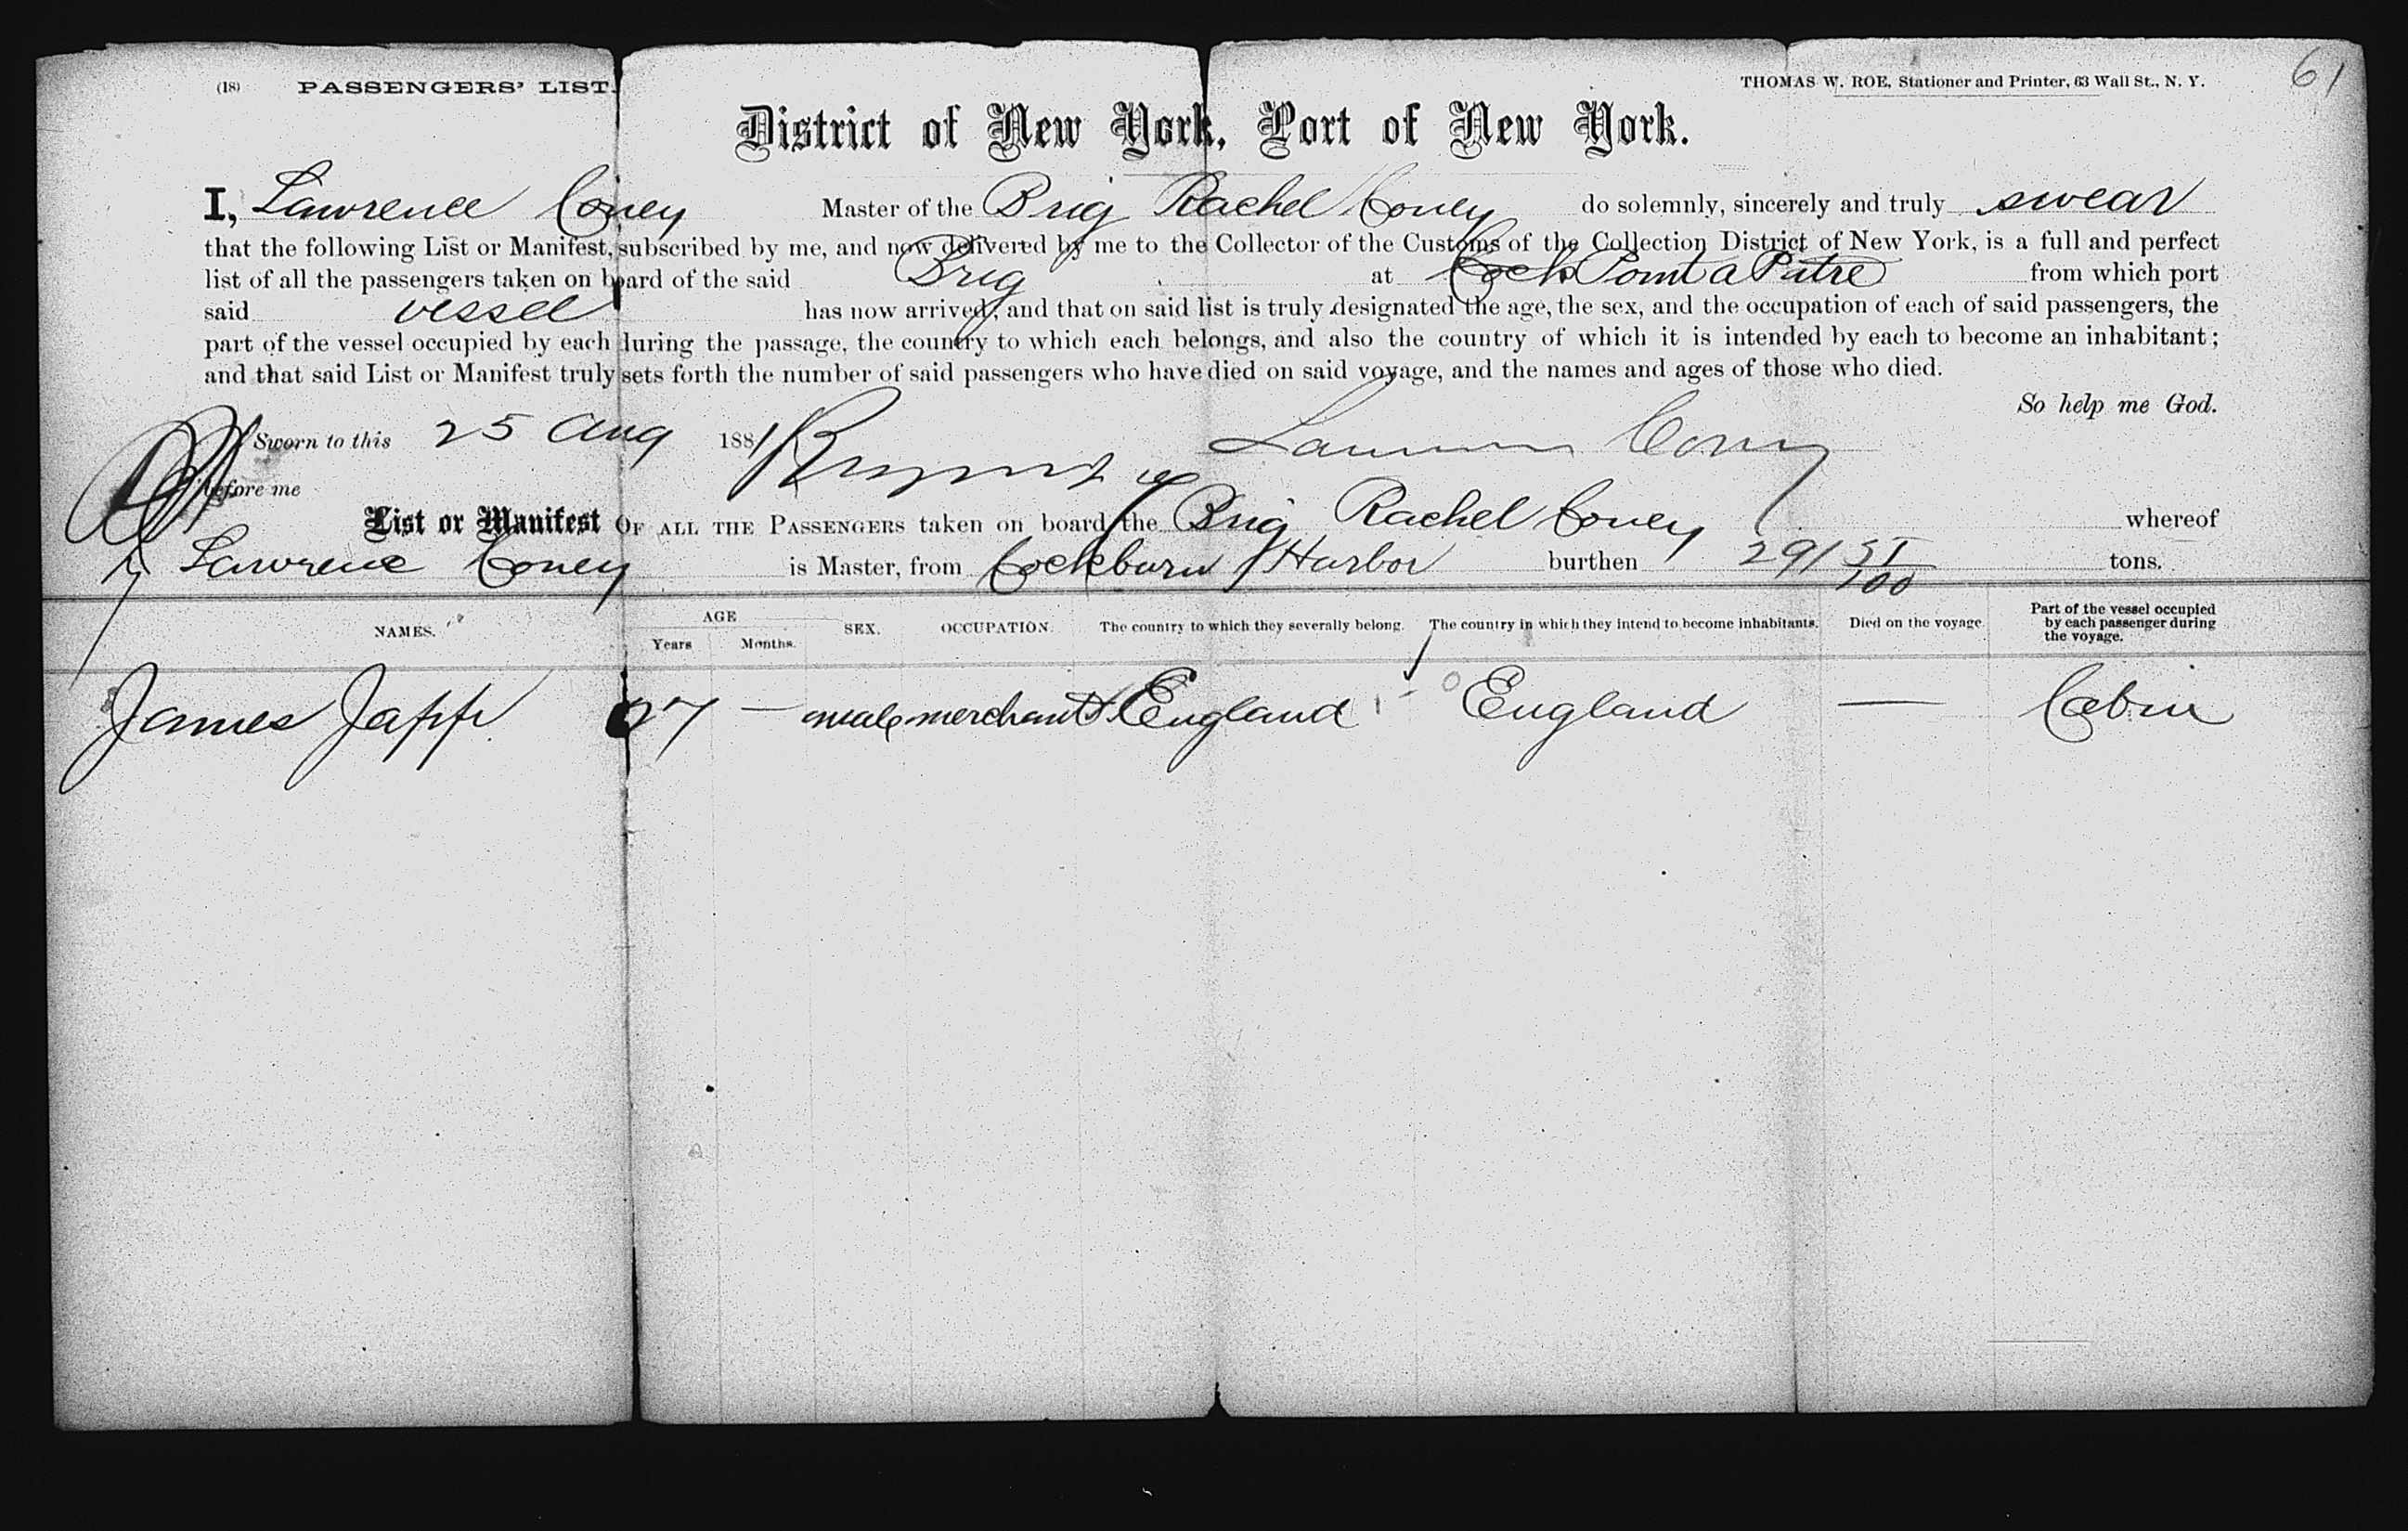 (18) PASSENGERS' LIST. THOMAS W. ROE, Stationer and Printer, 63 Wall St., N. Y. 61
District of New York, Port of New York.
I, Lawrence Coney Master of the Brig Rachel Coney do solemnly, sincerely and truly swear
that the following List or Manifest, subscribed by me, and now delivered by me to the Collector of the Customs of the Collection District of New York, is a full and perfect
list of all the passengers taken on board of the said Brig at Cock Point a Patre from which port
said vessel has now arrived, and that on said list is truly designated the age, the sex, and the occupation of each of said passengers, the
part of the vessel occupied by each during the passage, the country to which each belongs, and also the country of which it is intended by each to become an inhabitant;
and that said List or Manifest truly sets forth the number of said passengers who have died on said voyage, and the names and ages of those who died.
So help me God.
Sworn to this 25 Aug 1881 Lawrence Coney
before me
List or Manifest OF ALL THE PASSENGERS taken on board the Brig Rachel Coney whereof
Lawrence Coney is Master, from Cockburn Harbor burthen 291 51/100 tons.
NAMES. AGE Years Months. SEX. OCCUPATION. The country to which they severally belong. The country in which they intend to become inhabitants. Died on the voyage. Part of the vessel occupied by each passenger during the voyage.
James Japp 27 — male merchant England England — Cabin